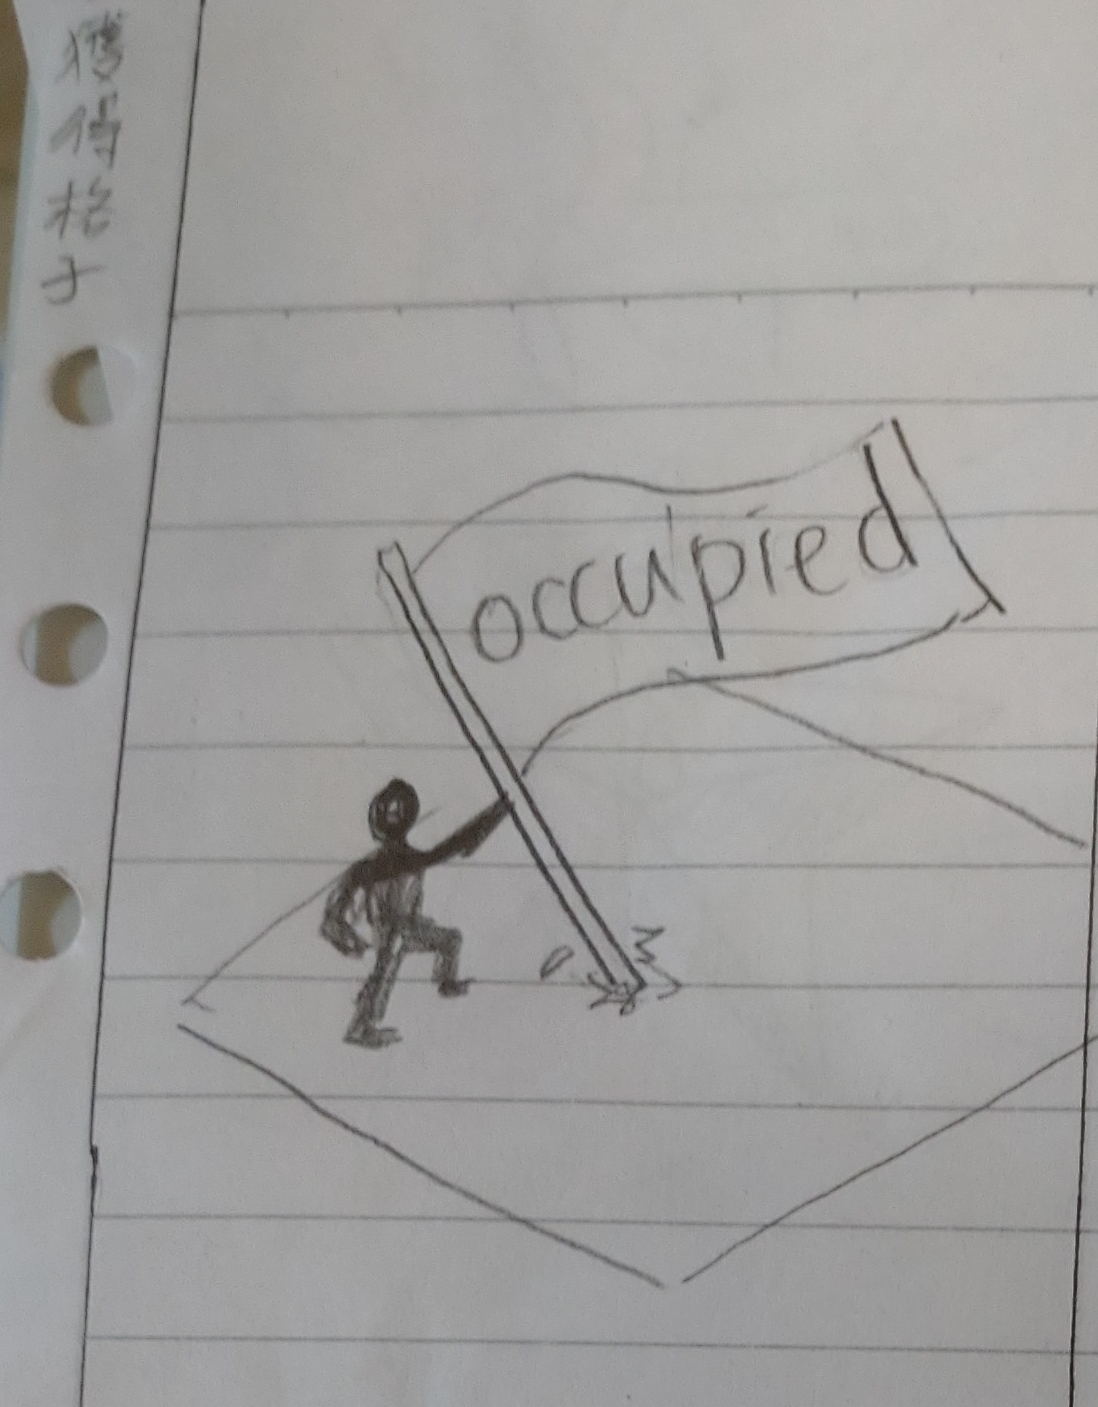 獲得格子
occupied